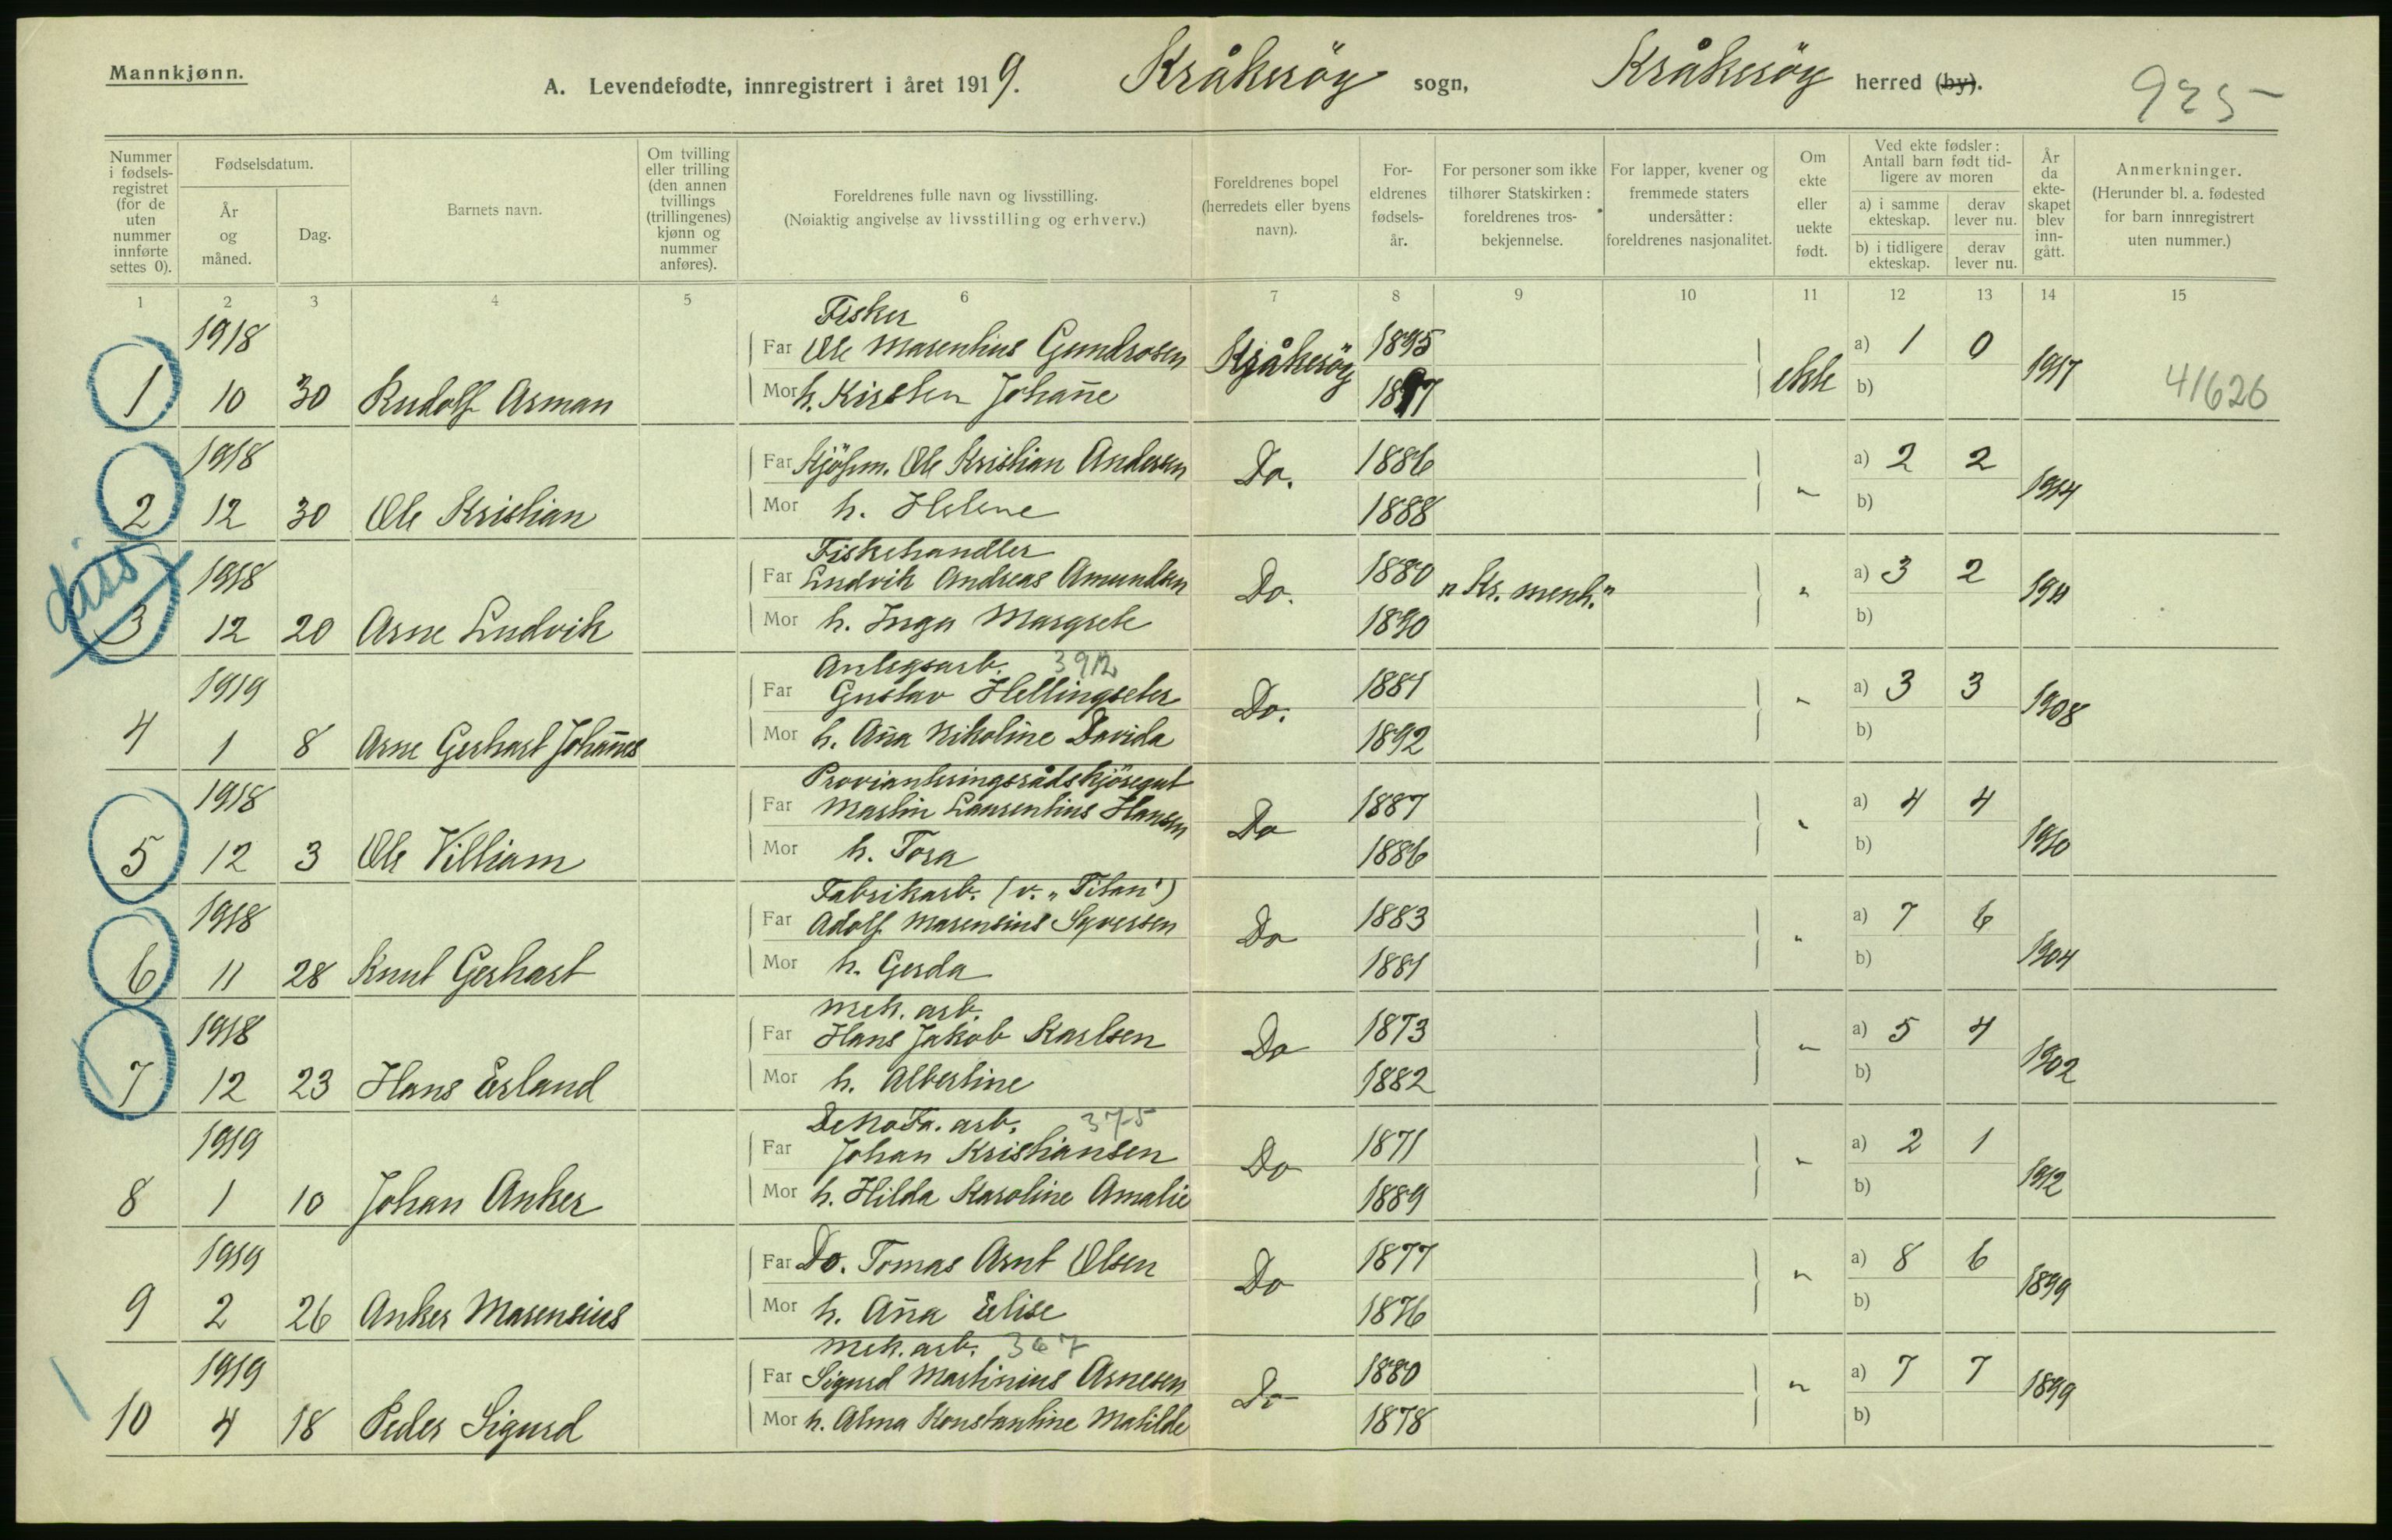 Mannkjønn.
A. Levendefødte, innregistrert i året 1919. Kråkeröy sogn, Kråkeröy herred (by).
925
Nummer i fødsels-registret (for de uten nummer innførte settes 0).
Fødselsdatum.
År og måned.
Dag.
Barnets navn.
Om tvilling eller trilling (den annen tvillings (trillingenes) kjønn og nummer anføres).
Foreldrenes fulle navn og livsstilling.
(Nøiaktig angivelse av livsstilling og erhverv.)
Foreldrenes bopel (herredets eller byens navn).
For-eldrenes fødsels-år.
For personer som ikke tilhører Statskirken: foreldrenes tros-bekjennelse.
For lapper, kvener og fremmede staters undersåtter: foreldrenes nasjonalitet.
Om ekte eller uekte født.
Ved ekte fødsler: Antall barn født tid-ligere av moren
a) i samme ekteskap.
derav lever nu.
b) i tidligere ekteskap.
derav lever nu.
År da ekte-skapet blev inn-gått.
Anmerkninger.
(Herunder bl. a. fødested for barn innregistrert uten nummer.)
1 2 3 4 5 6 7 8 9 10 11 12 13 14 15
Fisker
1918 Far Ole Marentius Gundrosen Kråkeröy 1895 a) 1 0 1917
1 10 30 Rudolf Arman Mor h. Kirsten Johanne 1897 ekte b) 41626
1918 Far Kjöpm. Ole Kristian Andersen Do. 1886 a) 2 2 1914
2 12 30 Ole Kristian Mor h. Helene 1888 " b)
Fiskehandler
1918 Far Ludvik Andreas Amundsen Do. 1880 "Kr. menh." a) 3 2 1911
diss
3 12 20 Arne Ludvik Mor h. Inga Margrete 1890 " b)
Anlegsarb. 3912
1919 Far Gustav Hellingseter Do. 1881 a) 3 3 1908
4 1 8 Arne Gerhart Johannes Mor h. Anna Nikoline Davida 1892 " b)
Provianteringsrådskjöregut
1918 Far Martin Laurentius Hansen Do 1887 a) 4 4 1910
5 12 3 Ole Villiam Mor h. Tora 1886 " b)
Fabrikarb. (v. "Titan")
1918 Far Adolf Marensius Syversen Do 1883 a) 7 6 1904
6 11 28 Knut Gerhart Mor h. Gerda 1881 " b)
Mek. arb.
1918 Far Hans Jakob Karlsen Do 1873 a) 5 4 1902
7 12 23 Hans Erland Mor h. Albertine 1882 " b)
DeNoFa. arb. 375
1919 Far Johan Kristiansen Do 1871 a) 2 1 1912
8 1 10 Johan Anker Mor h. Hilda Karoline Amalie 1889 " b)
1919 Far Do. Tomas Arnt Olsen Do 1877 a) 8 6 1899
9 2 26 Anker Marensius Mor h. Anna Elise 1876 " b)
Mek. arb. 367
1919 Far Sigurd Martinius Arnesen Do 1880 a) 7 7 1899
10 4 18 Peder Sigurd Mor h. Alma Konstantine Matilde 1878 " b)